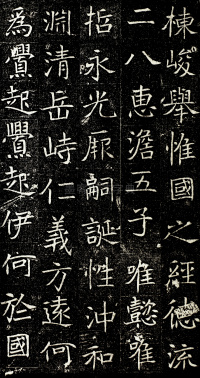 棟峻舉惟國之經德流
二八惠澹五子唯懿唯
哲永光厥嗣誕性沖和
淵清岳峙仁義方遠何
爲釁起釁起伊何於國